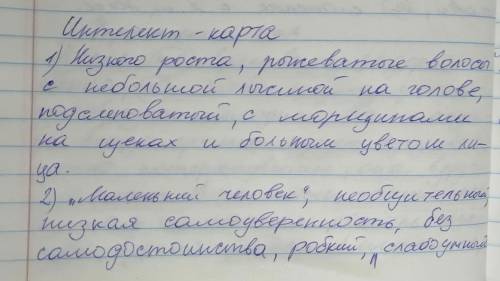 Интелект - карта
1) Низкого роста, рыжеватые волосы
с небольшой лысиной на голове,
подслеповатый, с морщинами
на щеках и больным цветом ли-
ца.
2) „Маленький человек", необщительный,
низкая самоуверенность, без
самодостоинства, робкий, „слабоумной